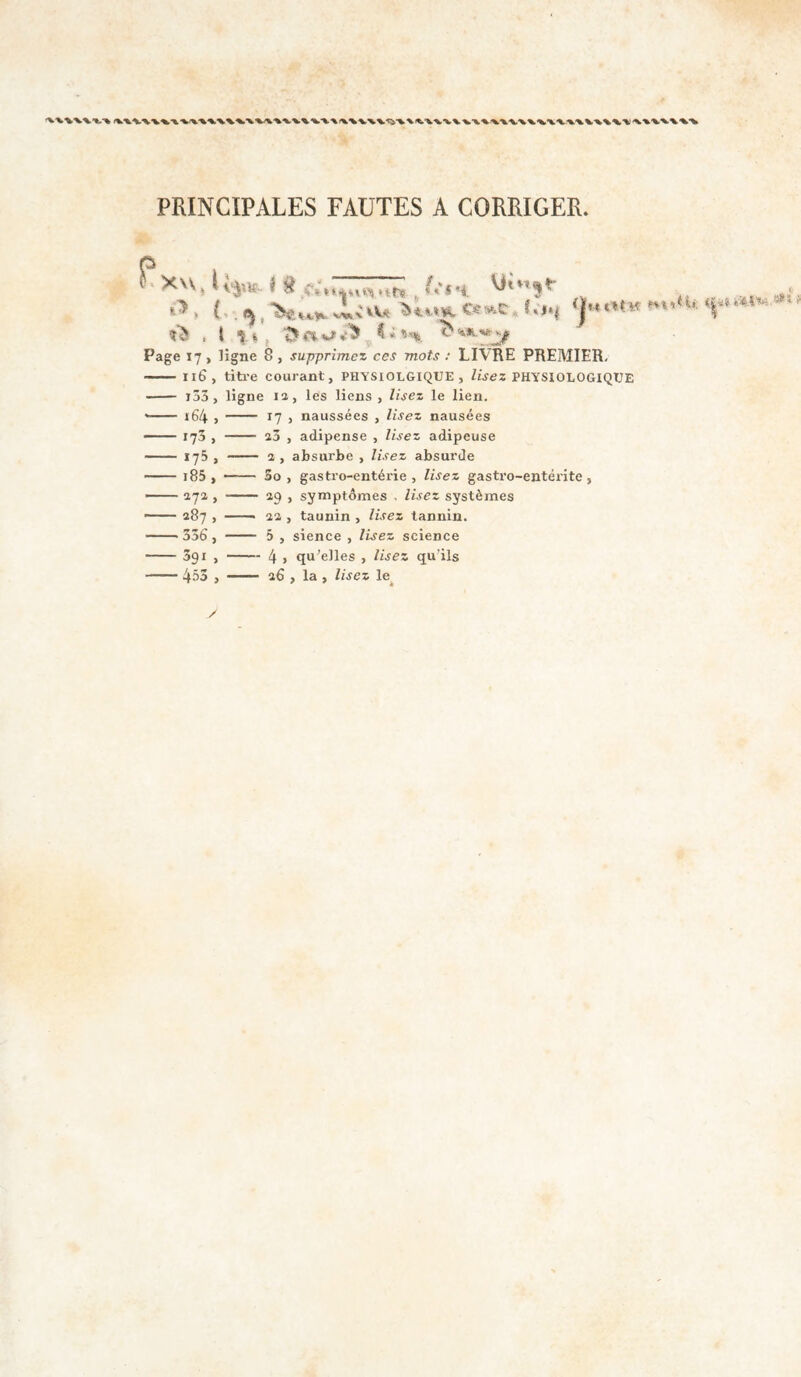 PRINCIPALES FAUTES A CORRIGER.
P. XVI, ligne 18 cinquante, lisez Vingt
id, l. 9, Deux mille Deux Cent, lisez Quatre mille
id, l. David lisez
Page 17, ligne 8, supprimez ces mots : LIVRE PREMIER.
—— 116, titre courant, PHYSIOLGIQUE, lisez PHYSIOLOGIQUE
—— 133, ligne 12, les liens, lisez le lien.
—— 164, —— 17, naussées, lisez nausées
—— 173, —— 23, adipense, lisez adipeuse
—— 175, —— 2, absurbe, lisez absurde
—— 185, —— 30, gastro-entérie, lisez gastro-entérite,
—— 272, —— 29, symptômes, lisez systèmes
—— 287, —— 22, taunin, lisez tannin.
—— 336, —— 5, sience, lisez science
—— 391, —— 4, qu'elles, lisez qu'ils
—— 453, —— 26, la, lisez le